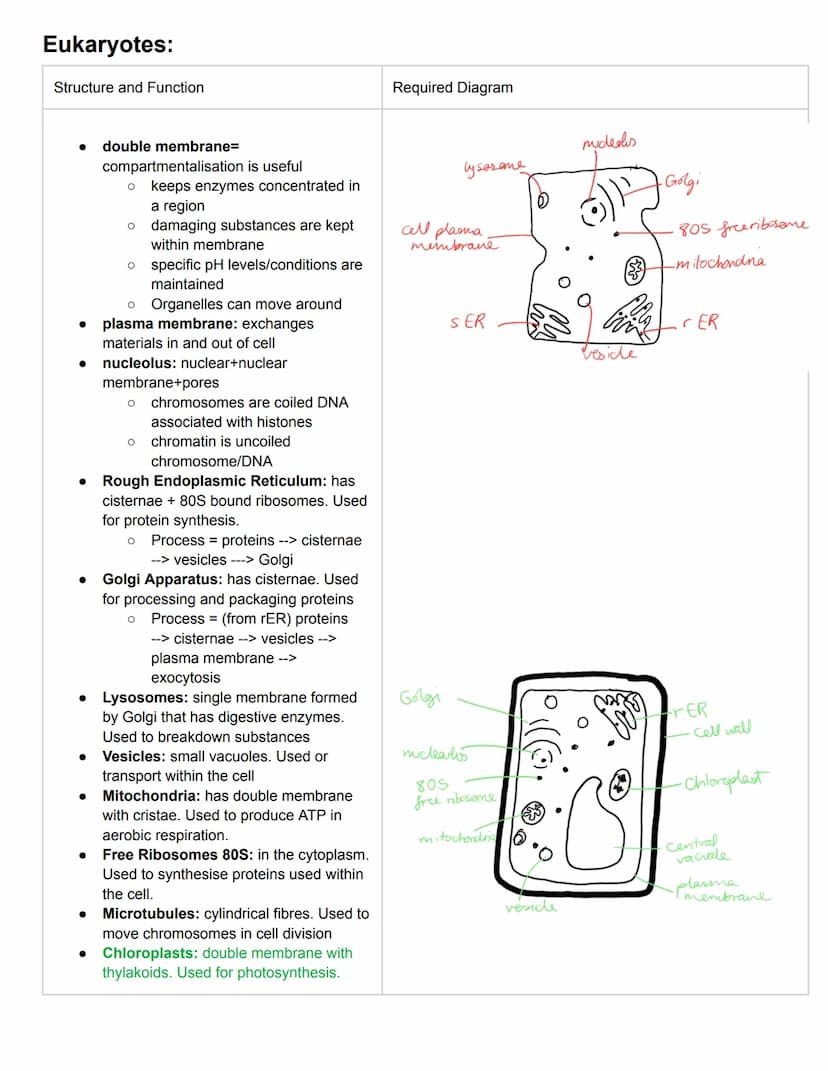 Eukaryotes:
Structure and Function
Required Diagram
● double membrane=
compartmentalisation is useful
○ keeps enzymes concentrated in
a region
○ damaging substances are kept
within membrane
○ specific pH levels/conditions are
maintained
○ Organelles can move around
● plasma membrane: exchanges
materials in and out of cell
● nucleolus: nuclear+nuclear
membrane+pores
○ chromosomes are coiled DNA
associated with histones
○ chromatin is uncoiled
chromosome/DNA
● Rough Endoplasmic Reticulum: has
cisternae + 80S bound ribosomes. Used
for protein synthesis.
○ Process = proteins --> cisternae
--> vesicles ---> Golgi
● Golgi Apparatus: has cisternae. Used
for processing and packaging proteins
○ Process = (from rER) proteins
--> cisternae --> vesicles -->
plasma membrane -->
exocytosis
● Lysosomes: single membrane formed
by Golgi that has digestive enzymes.
Used to breakdown substances
● Vesicles: small vacuoles. Used or
transport within the cell
● Mitochondria: has double membrane
with cristae. Used to produce ATP in
aerobic respiration.
● Free Ribosomes 80S: in the cytoplasm.
Used to synthesise proteins used within
the cell.
● Microtubules: cylindrical fibres. Used to
move chromosomes in cell division
● Chloroplasts: double membrane with
thylakoids. Used for photosynthesis.
nucleolus
lysosome
Golgi
cell plasma
membrane
80S free ribosome
mitochondria
s ER
r ER
vesicle
Golgi
rER
cell wall
nucleolus
80S
free ribosome
chloroplast
mitochondria
central
vacuole
plasma
membrane
vesicle